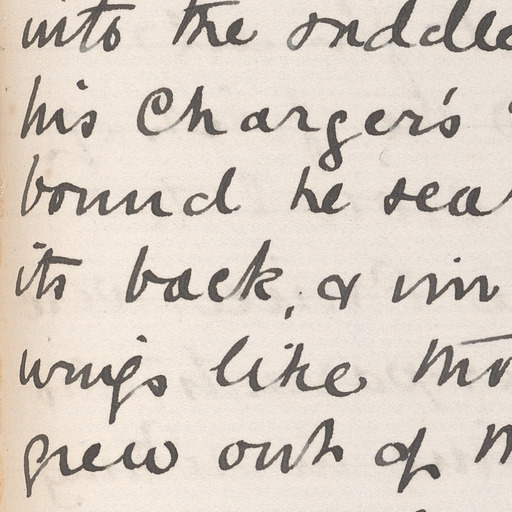 into the saddle
his Charger's
bound he sea
its back, & im
wings like tho
grew out of